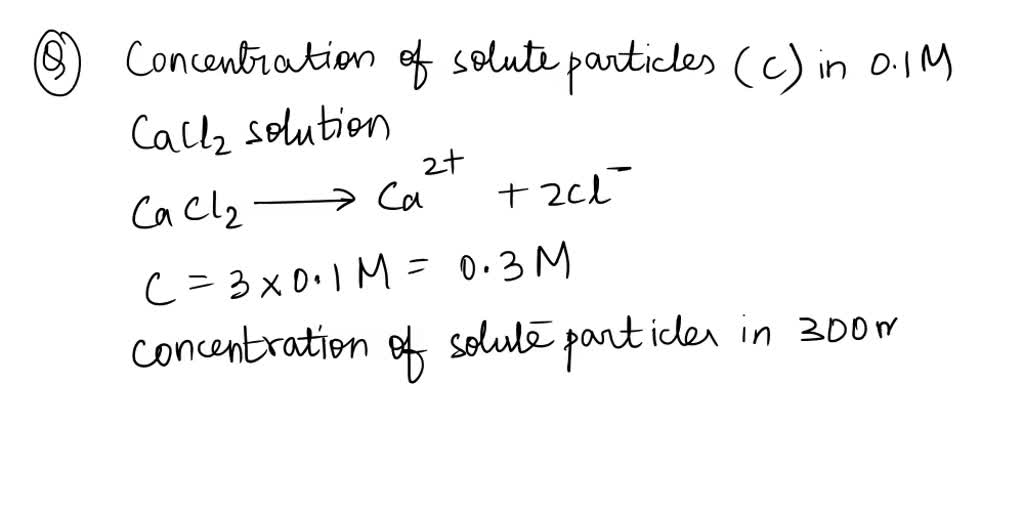 Q Concentration of solute particles (C) in 0.1M
CaCl₂ solution
CaCl₂ ⟶ Ca²⁺ + 2Cl⁻
C = 3 × 0.1M = 0.3M
concentration of solute particles in 300m